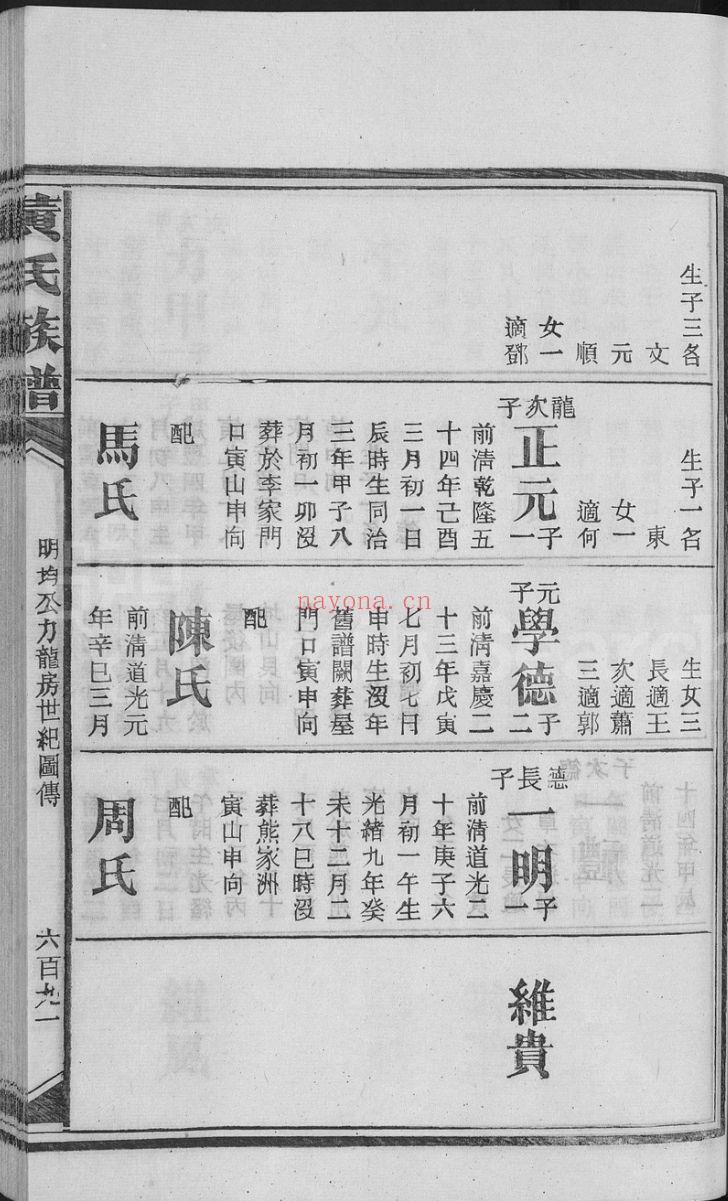 黄氏族譜
明均公力龍房世紀圖傳
六百九一
生子三各
文
元
順
女一
適鄧
生子一名
東
女一
適何
龍次子
正元子一
前清乾隆五
十四年己酉
三月初一日
辰時生同治
三年甲子八
月初一卯沒
葬於李家門
口寅山申向
配
馬氏
生女三
長適王
次適蕭
三適郭
元子
學德子二
前清嘉慶二
十三年戊寅
七月初七日
申時生沒年
舊譜闕葬屋
門口寅申向
配
陳氏
前清道光元
年辛巳三月
德長子
一明子
前清道光二
十年庚子六
月初一午生
光緒九年癸
未十二月二
十八巳時沒
葬熊家洲
寅山申向
配
周氏
維貴
nayona.cn